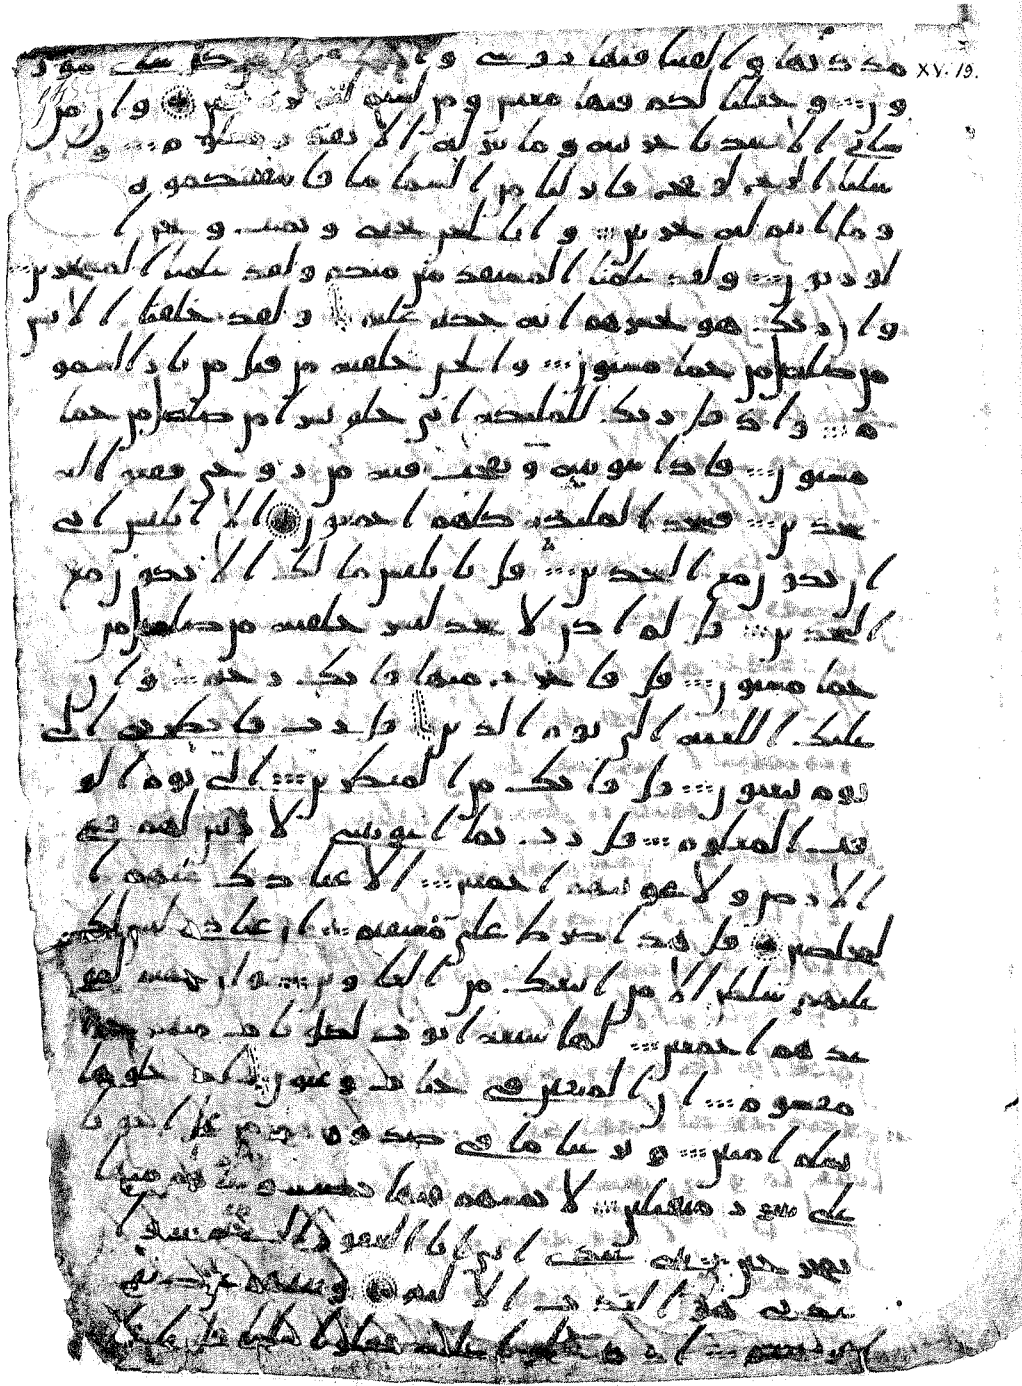 مددنها و القينا فيها روسي و انبتنا فيها من كل شي موز XV. 19.
ون و جعلنا لكم فيها معيش ومن لستم له برزقين و ان من
شاي الا عندنا خزينه و ما ننزله الا بقدر معلوم و
رسلنا الريح لوقح فانزلنا من السما ما فاسقينكموه
و ما انتم له بخزنين و انا لنحن نحي و نميت و نحن ا
لورثون و لقد علمنا المستقدمين منكم و لقد علمنا المستخرين
و ان ربك هو يحشرهم انه حكيم عليم و لقد خلقنا الانسن
من صلصل من حما مسنون و الجن خلقنه من قبل من نار السمو
م و اذ قل ربك للمليكه اني خلق بشرا من صلصل من حما
مسنون فاذا سويته و نفخت فيه من روحي فقعوا له
سجدين فسجد المليكه كلهم اجمعون الا ابليس ابى
ان يكون مع السجدين قل يابليس ما لك الا تكون مع
السجدين قل لم اكن لا سجد لبشر خلقته من صلصل من
حما مسنون قل فاخرج منها فانك رجيم و ان
عليك اللعنه الى يوم الدين قل رب فانظرني الى
يوم يبعثون قل فانك من المنظرين الى يوم الو
قت المعلوم قل رب بما اغويتني لا زينن لهم في
الارض و لاغوينهم اجمعين الا عبادك منهم ا
لمخلصين قل هذا صرط علي مستقيم ان عبادي ليس لك
عليهم سلطن الا من اتبعك من الغوين و ان جهنم لمو
عدهم اجمعين لها سبعه ابوب لكل باب منهم
مقسوم ان المتقين في جنت و عيون ادخلوها
بسلم امنين و نزعنا ما في صدورهم من غل اخونا
على سرر متقبلين لا يمسهم فيها نصب و ما هم منها
بمخرجين اني انا الغفور الرحيم
عذبي هو العذب الاليم و نبهم عن ضيف
ابرهيم اذ دخلوا عليه فقالوا سلما قل